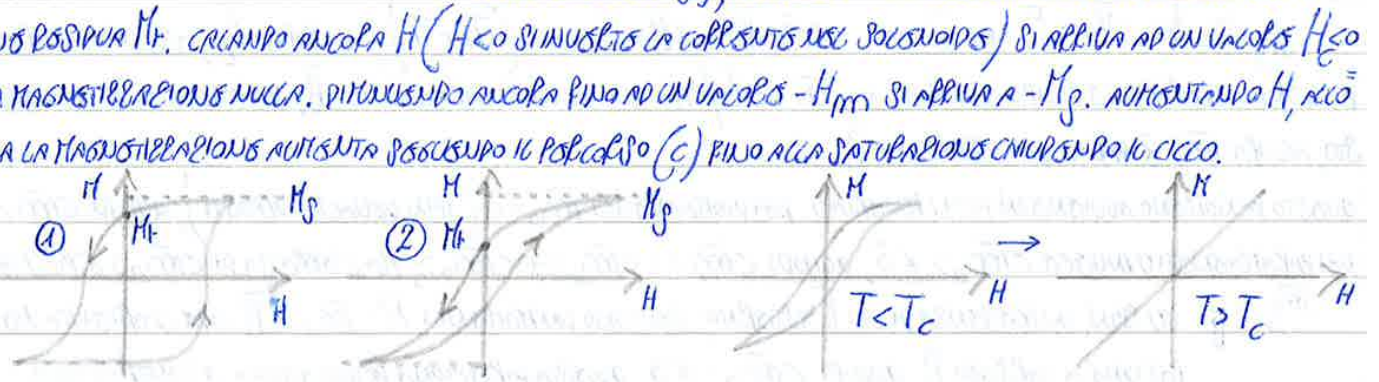 RESIDUA Mr. CALANDO ANCORA H (H<0 SI INVERTE LA CORRENTE NEL SOLENOIDE) SI ARRIVA AD UN VALORE Hc<0
MAGNETIZZAZIONE NULLA. DIMINUENDO ANCORA FINO AD UN VALORE -Hm SI ARRIVA A -Ms. AUMENTANDO H, ALLO=
A LA MAGNETIZZAZIONE AUMENTA SEGUENDO IL PERCORSO (C) FINO ALLA SATURAZIONE CHIUDENDO IL CICLO.
① M Mr Ms H
② M Mr Ms H
M H T<Tc →
M H T>Tc